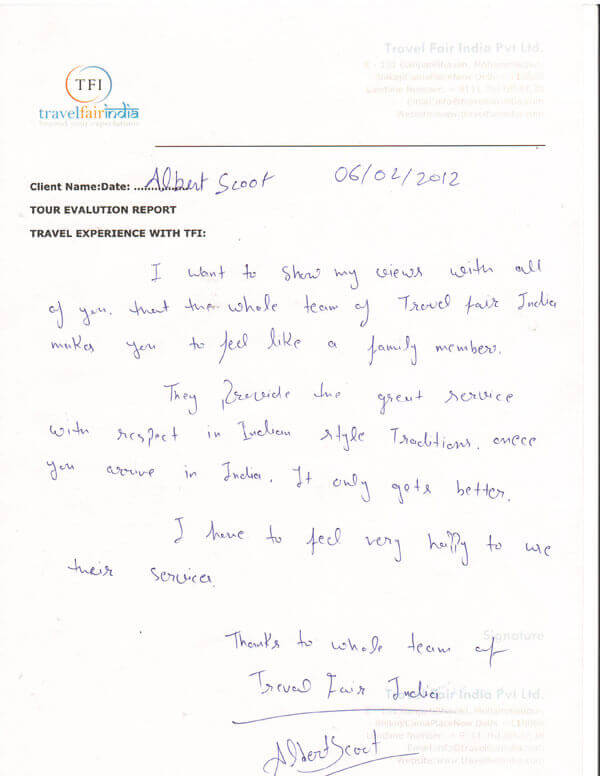 Travel Fair India Pvt Ltd.
TFI
travelfairindia
Client Name:Date: ............... Albert Scoot 06/02/2012
TOUR EVALUTION REPORT
TRAVEL EXPERIENCE WITH TFI:
I want to show my views with all
of you. that the whole team of Travel fair India
makes you to feel like a family member.
They Provide the great service
with respect in Indian style Traditions. onece
you arrive in India. It only gets better.
I have to feel very happy to use
their services
Signature
Thanks to whole team of
Treval Fair India
Travel Fair India Pvt Ltd.
Albert Scoot